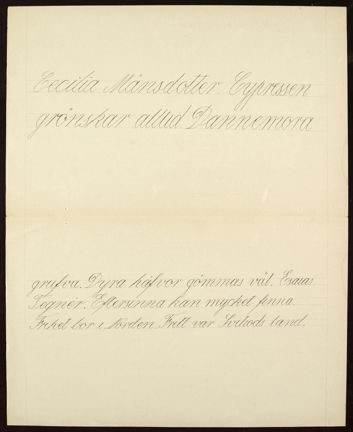 Cecilia Månsdotter. Cypressen
grönskar alltid Dannemora
grufva. Dyra håfvor gömmas väl. Esaias
Tegnér. Eftersinna kan mycket finna
Frihet bor i Norden Fritt var Svitiods land.